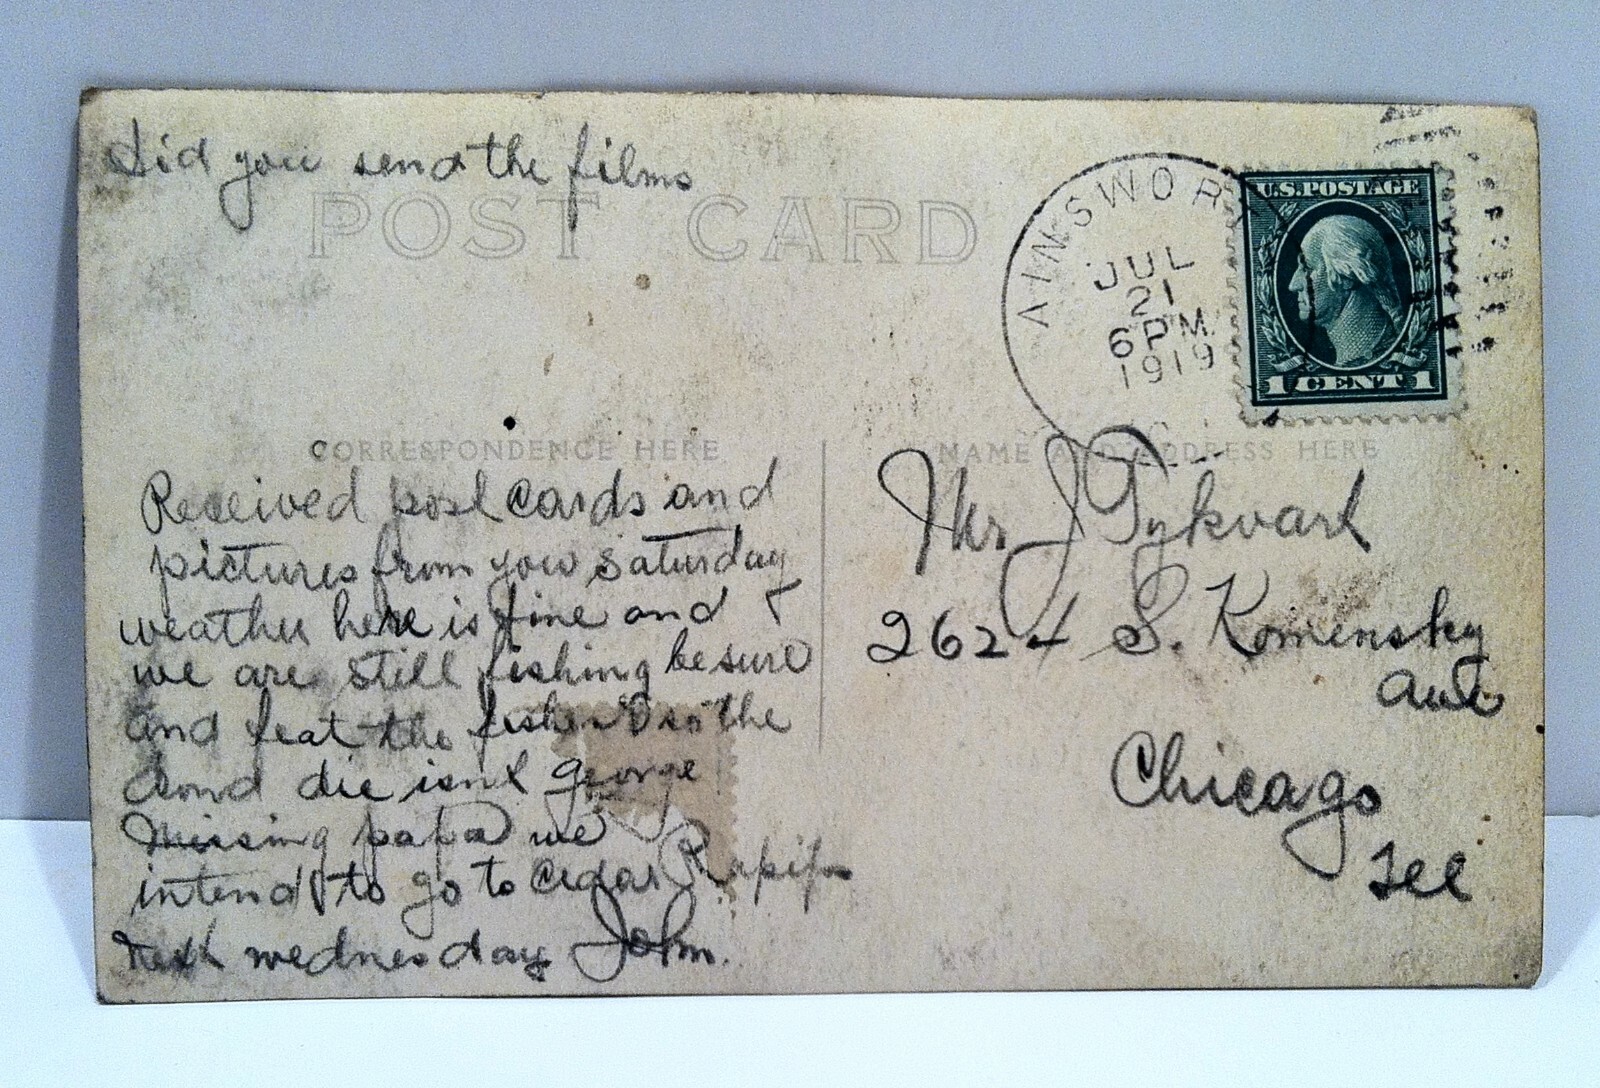 Did you send the films
POST CARD
AINSWOR
JUL
21
6 PM
1919
U.S. POSTAGE
1 CENT 1
CORRESPONDENCE HERE
NAME AND ADDRESS HERE
Received post cards and
pictures from you Saturday
weather here is fine and
we are still fishing be sure
and feat the fishes so the
dond die isnt George
Missing papa we
intend to go to Cedar Rapi
next wednesday John.
Mr J Tykvart
2624 S. Komensky
Ave
Chicago
Ill